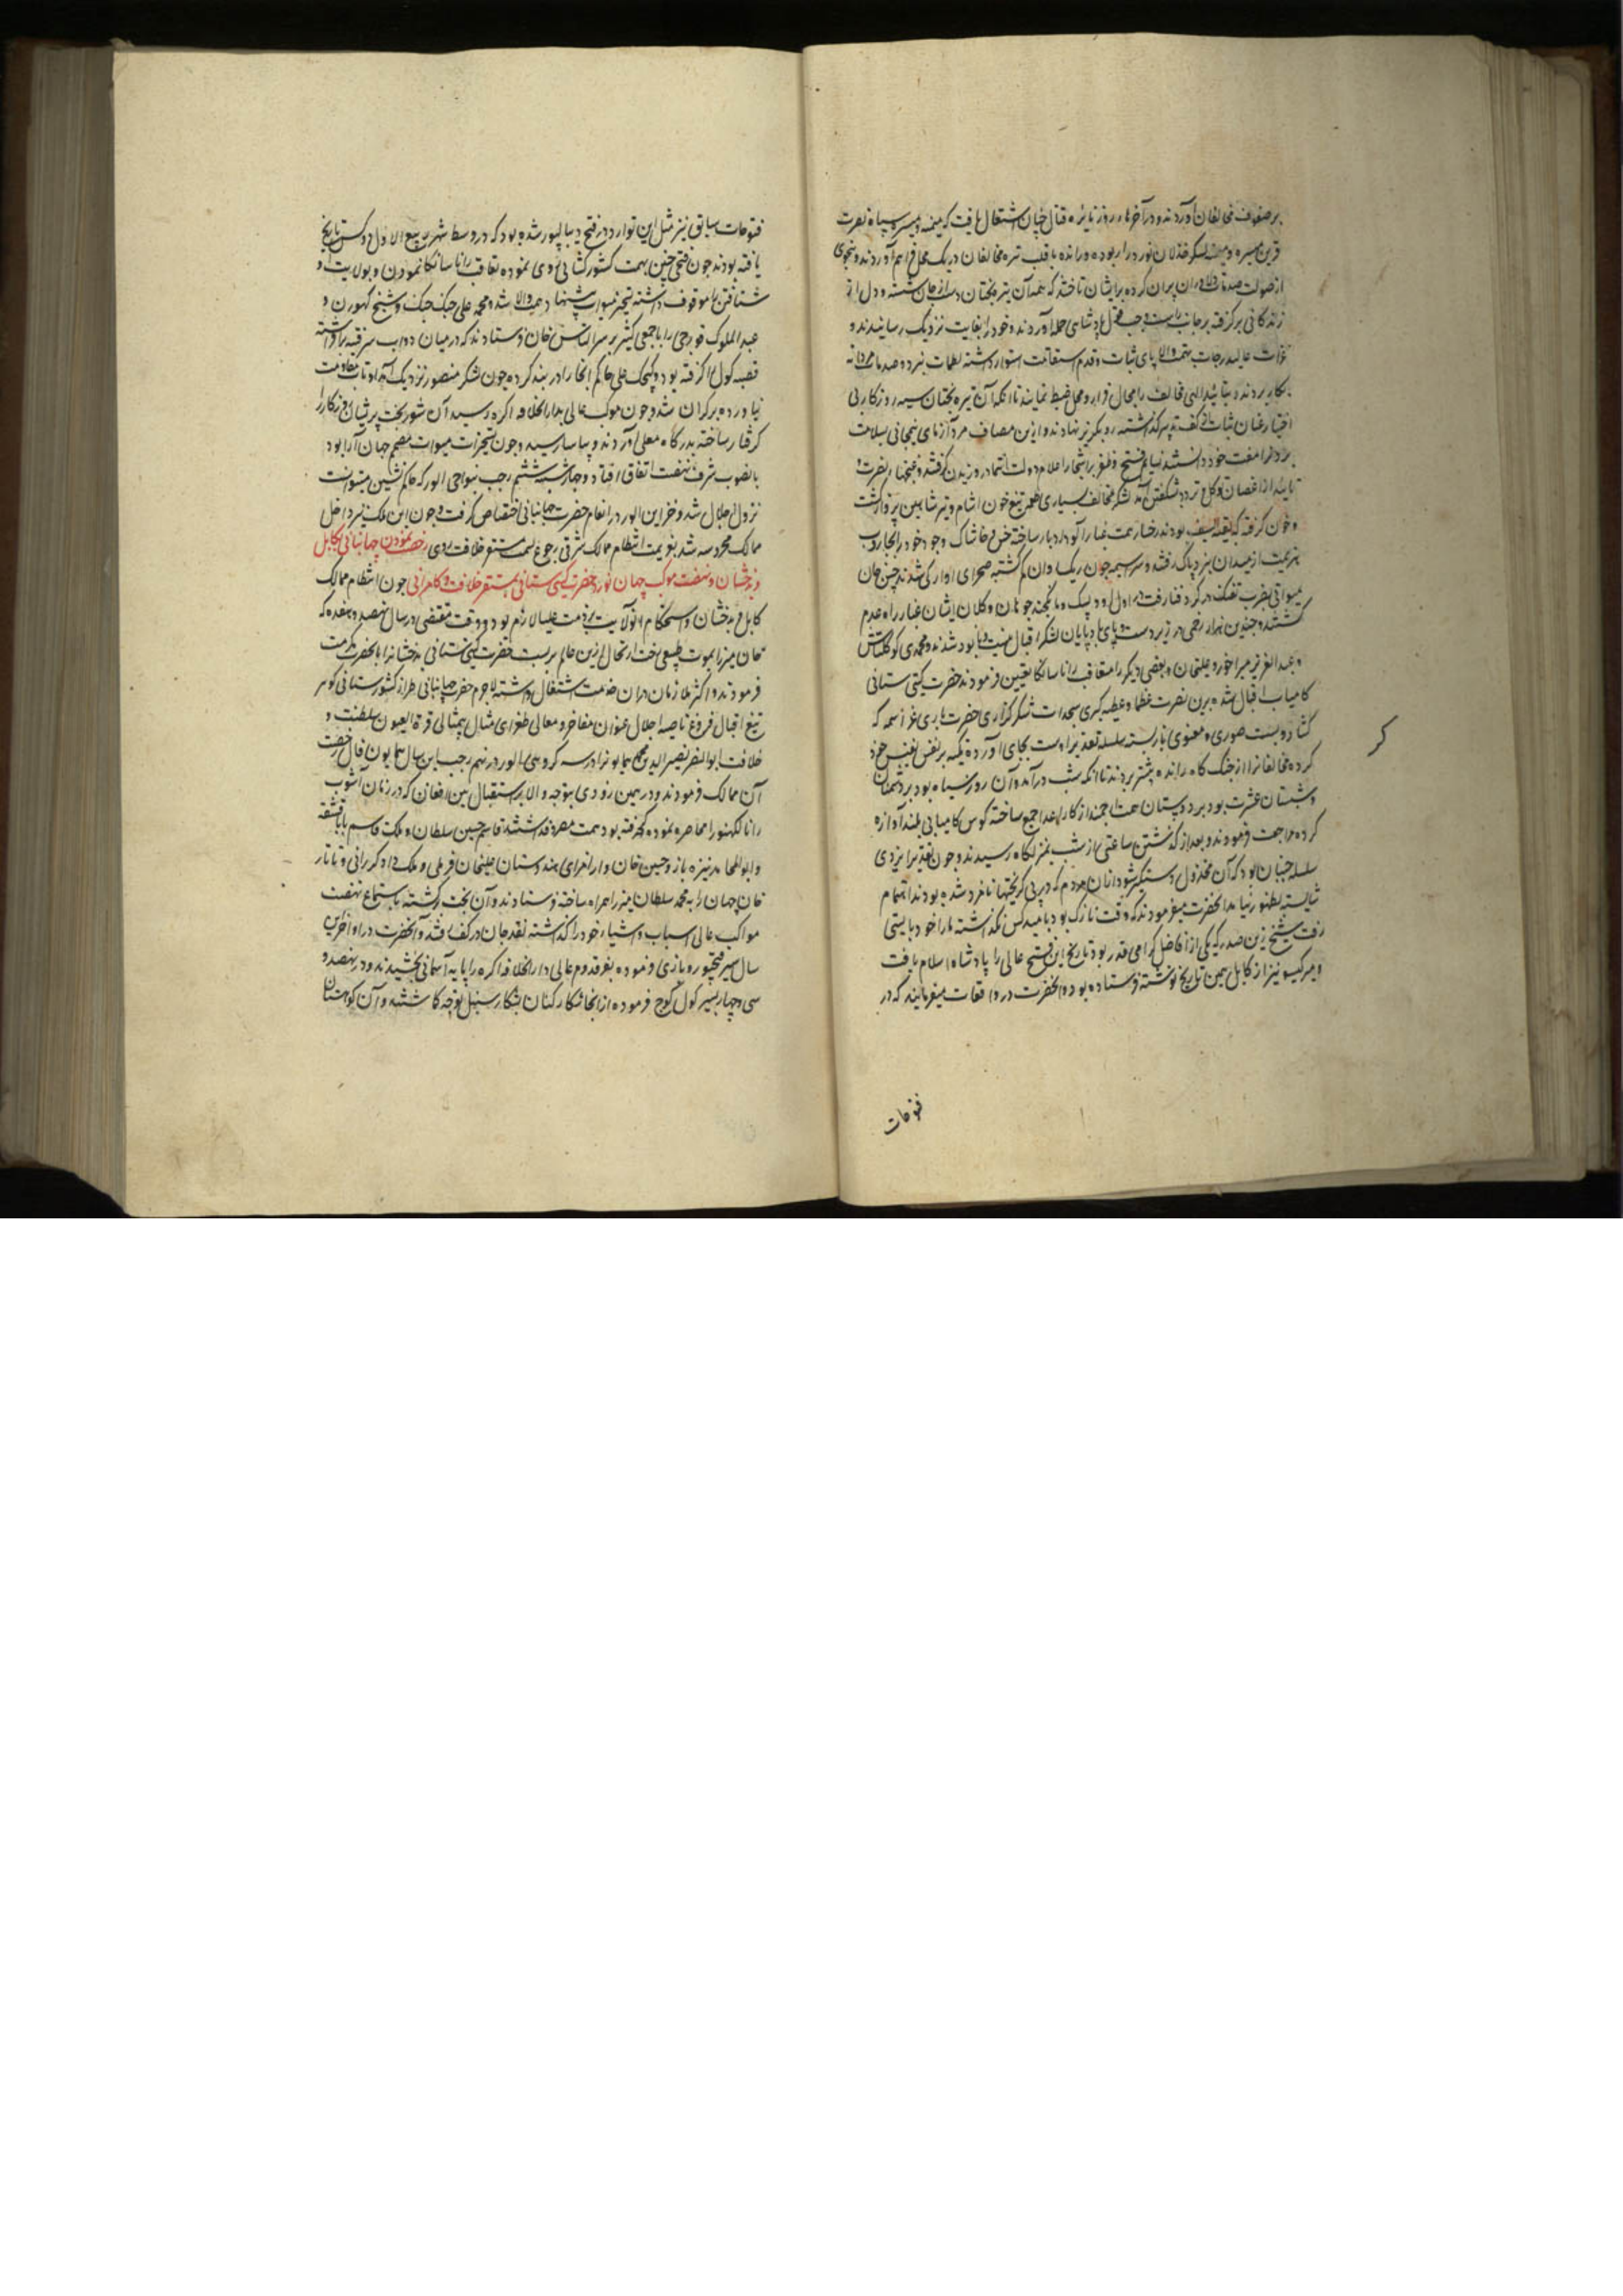 بر صفوف مخالفان آوردند و در آخرهای روز نایره قتال چنان اشتعال یافت که میمنه و میسره سپاه نصرت
قرین میسره و میمنه لشکر خذلان نور دار بوده و رانده با قلب تیره مخالفان در یک محل فراهم آوردند و بنحوی
از صولت صدمه دلاوران بران کرده برایشان تاخته که همه آن تیره بختان دست از جان شسته و دل از
زندکانی برکرفته بر جانب راست و چپ قول پادشاهی حمله آوردند و خود را بغایت نزدیک رسانیدند و
غزات عالیدرجات بهمت والا پای ثبات و قدم استقامت استوار داشته لطمات نبرد و صدمات مردانه
بکار بردند و بتائید الهی مخالف را مجال قرار و محل ضبط نماند تا آنکه آن تیره بختان سیه روزکار بی
اختیار عنان ثبات از کف تدبیر کذاشته رو بکریز نهادند و ازین مصاف مردآزمای نیمجانی بسلامت
بردنرا مفت خود دانستند نسایم فتح و ظفر بر اشجار اعلام دولت انتما در وزیدن کرفتند و غنچهاء نصرت و
تایید از اغصان توکل و تردد شکفتن آمد لشکر مخالف بسیاری طعمه تیغ خون آشام و تیر شاهین پرواز کشت
و خون کرفته که بقیه السیف بودند رخسار همت غبارآلود ادبار ساخته خس و خاشاک وجود خود را بجاروب
هزیمت از میدان نبرد پاک رفتند و سراسیمه چون ریک روان کم کشته صحرای آوارکی شدند حسن خان
میواتی بضرب تفنک در کرد فنا رفت و راول اودیسنک و مانکچند چوهان و کلان ایشان غبار راه عدم
کشتند و چندین هزار زخمی در زیر دست و پای بادپایان لشکر اقبال نیست و نابود شدند و محمدی کوکلتاش
و عبد العزیز میر اخور و علیخان و بعضی دیکر را بتعاقب رانا سانکا تعیین فرمودند حضرت کیتی ستانی
کامیاب اقبال شده برین نصرت عظما و عطیه کبری سجدات شکرکزاری حضرت باری عز اسمه که
کشاد و بست صوری و معنوی باز بسته سلسله تقدیر اوست بجای آورده یکه بر نفس نفیس خود
کرده مخالفانرا از جنک کاه رانده پیشتر بردند تا آنکه شب درآمد و آن روز سیاه بود بر دشمنان
و شبستان عشرت بود بر دوستان همت ارجمند از کار اعدا جمع ساخته کوس کامیابی بلند آوازه
کرده مراجعت فرمودند و بعد از کذشتن ساعتی از شب بمنزلکاه رسیدند و چون تقدیر ایزدی
سلسله جنبان بود که آن مخذول دستکیر شود ازان مردم که در پی کریختها نامزد شده بودند اهتمام
شایسته بظهور نیامد آنحضرت میفرمودند که وقت نازک بود بامید کس نکذاشته ما را خود بایستی
رفت شیخ زین صدر که یکی از افاضل کرامی قدر بود تاریخ این فتح عالی را پادشاه اسلام یافت
و میر کیسو نیز از کابل همین تاریخ نوشته فرستاده بود و آنحضرت در واقعات میفرمایند که در
فتوحات
فتوحات سابق نیز مثل این توارد در فتح دیبالپور شده بود که در وسط شهر ربیع الاول دو کس تاریخ
یافته بودند چون فتحی چنین بهمت کشورکشائی روی نموده تعاقب رانا سانکا نمودن و بولایت او
شتافتن را موقوف داشته تسخیر میوات پیشنهاد همت والا شد و محمد علی جنک جنک و شیخ کهورن و
عبد الملوک قورچی را با جمعی کثیر بر سر الیاس خان فرستادند که در میان دوآب سر فتنه برداشته
قصبه کول را کرفته بود و کیچک علی حاکم آنجا را در بند کرده چون لشکر منصور نزدیک آمد او تاب مقاومت
نیاورده برکران شد و چون موکب عالی بدار الخلافه اکره رسید آن شوربخت پریشان روزکار را
کرفتار ساخته بدرکاه معلی آوردند و بیاسا رسید و چون تسخیر ملک میوات مصمم جهان آرا بود
بانصوب شرف نهضت اتفاق افتاد و چهارشنبه ششم رجب بنواحی الور که حاکم نشین میوات است
نزول اجلال شد و خزاین الور در انعام حضرت جهانبانی اختصاص کرفت و چون این ملک نیز داخل
ممالک محروسه شد بعزیمت انتظام ممالک شرقی رجوع بسمت مستقر خلافت روی رخصت نمودن جهانبانی بکابل
و بدخشان و نهضت موکب جهان نورد حضرت کیتی ستانی بمستقر خلافت و کامرانی چون انتظام ممالک
کابل و بدخشان و استحکام آنولایت بر ذمت علیا لازم بود و وقت مقتضی در سال نهصد و هفده که
خان میرزا بموت طبیعی رخت ارتحال ازین عالم بربست حضرت کیتی ستانی بدخشانرا بآنحضرت کرمت
فرمودند و اکثر ملازمان دران خدمت اشتغال داشتند لاجرم حضرت جهانبانی طراز کشورستانی کوهر
تیغ اقبال فروغ ناصیه اجلال عنوان مفاخر و معالی طغرای مثال بیمثالی قرة العیون سلطنت و
خلافت ابو النصر نصیر الدین محمد همایونرا در سه کروهی الور در نهم رجب این سال همایون فال رخصت
آن ممالک فرمودند و در همین زودی بتوجه والا باستقبال بین افغان که در زمان آشوب
رانا لکهنور را محاصره نموده کرفته بود همت مصروف داشتند قاسم حسین سلطان و ملک قاسم بابا قشقه
و ابو المحامد نیزه باز و حسین خان و از امرای هندوستان علیخان فرملی و ملک داد کررانی و تاتار
خان جهان را به محمد سلطان میرزا همراه ساخته فرستادند و آن بخت برکشته باستماع نهضت
مواکب عالی اسباب و اشیاء خود را کذاشته نقد جان در کف رفت و آنحضرت در اواخر این
سال سیر فتحپور و باری فرموده بفر قدوم عالی دار الخلافه اکره را پایه آسمانی بخشیدند و در نهصد و
سی و چهار بسیر کول کوچ فرموده از آنجا شکارکنان بشکار سنبل توجه کماشتند و آن کوهستان